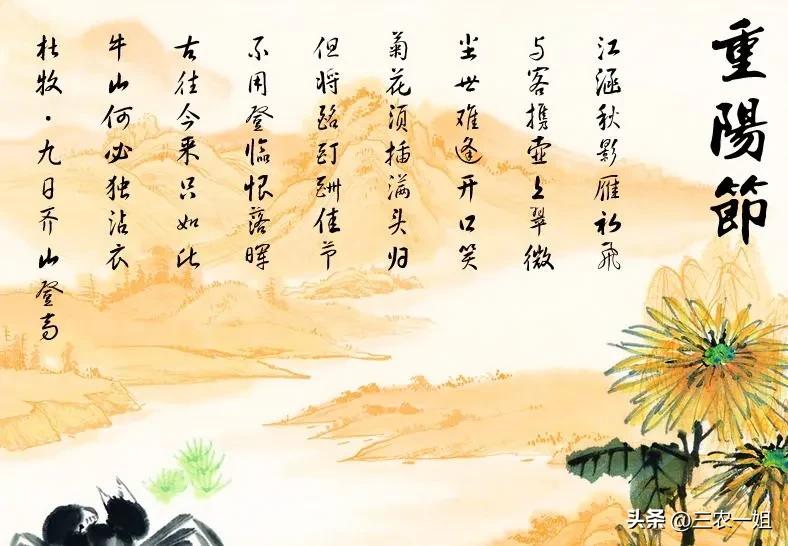 重陽節
江涵秋影雁初飞
与客携壶上翠微
尘世难逢开口笑
菊花须插满头归
但将酩酊酬佳节
不用登临恨落晖
古往今来只如此
牛山何必独沾衣
杜牧·九日齐山登高
头条 @三农一姐